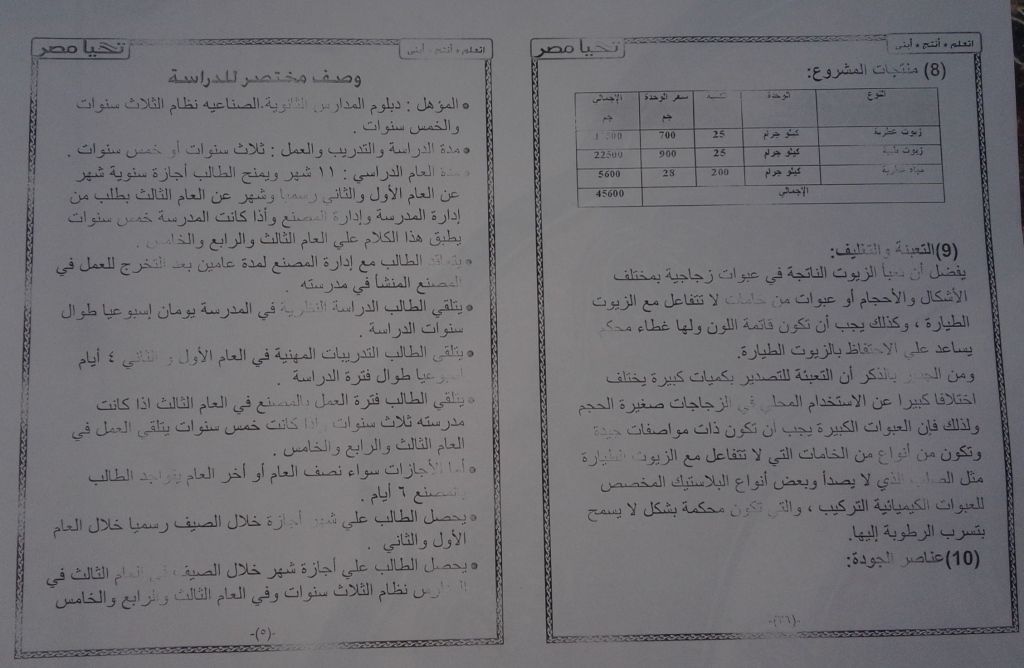 اتعلم * أنتج * أبنى
تحيا مصر
(8) منتجات المشروع:
النوع الوحدة الكمية سعر الوحدة جم الإجمالي جم
زيوت عطرية كيلو جرام 25 700
زيوت طبية كيلو جرام 25 900 22500
مياه عطرية كيلو جرام 200 28 5600
الإجمالي 45600
(9) التعبئة والتغليف:
يفضل أن تعبأ الزيوت الناتجة في عبوات زجاجية بمختلف
الأشكال والأحجام أو عبوات من خامات لا تتفاعل مع الزيوت
الطيارة ، وكذلك يجب أن تكون قاتمة اللون ولها غطاء محكم
يساعد علي الاحتفاظ بالزيوت الطيارة.
ومن الجدير بالذكر أن التعبئة للتصدير بكميات كبيرة يختلف
اختلافا كبيرا عن الاستخدام المحلي في الزجاجات صغيرة الحجم
ولذلك فإن العبوات الكبيرة يجب أن تكون ذات مواصفات جيدة
وتكون من أنواع من الخامات التي لا تتفاعل مع الزيوت الطيارة
مثل الصلب الذي لا يصدأ وبعض أنواع البلاستيك المخصص
للعبوات الكيميائية التركيب ، والتي تكون محكمة بشكل لا يسمح
بتسرب الرطوبة إليها.
(10) عناصر الجودة:
-(٢٦)-
اتعلم * أنتج * أبنى
تحيا مصر
وصف مختصر للدراسة
• المؤهل : دبلوم المدارس الثانوية الصناعيه نظام الثلاث سنوات
والخمس سنوات .
• مدة الدراسة والتدريب والعمل : ثلاث سنوات أو خمس سنوات .
• مدة العام الدراسي : ١١ شهر ويمنح الطالب أجازة سنوية شهر
عن العام الأول والثاني رسميا وشهر عن العام الثالث بطلب من
إدارة المدرسة وإدارة المصنع وأذا كانت المدرسة خمس سنوات
يطبق هذا الكلام علي العام الثالث والرابع والخامس .
• يتعاقد الطالب مع إدارة المصنع لمدة عامين بعد التخرج للعمل في
المصنع المنشأ في مدرسته .
• يتلقي الطالب الدراسة النظرية في المدرسة يومان إسبوعيا طوال
سنوات الدراسة.
• يتلقي الطالب التدريبات المهنية في العام الأول و الثاني ٤ أيام
اسبوعيا طوال فترة الدراسة .
• يتلقي الطالب فترة العمل بالمصنع في العام الثالث اذا كانت
مدرسته ثلاث سنوات وإذا كانت خمس سنوات يتلقي العمل في
العام الثالث والرابع والخامس .
• أما الأجازات سواء نصف العام أو أخر العام يتواجد الطالب
بالمصنع ٦ أيام .
• يحصل الطالب علي شهر أجازة خلال الصيف رسميا خلال العام
الأول والثاني .
• يحصل الطالب علي أجازة شهر خلال الصيف في العام الثالث في
المدارس نظام الثلاث سنوات وفي العام الثالث والرابع والخامس
-(٥)-